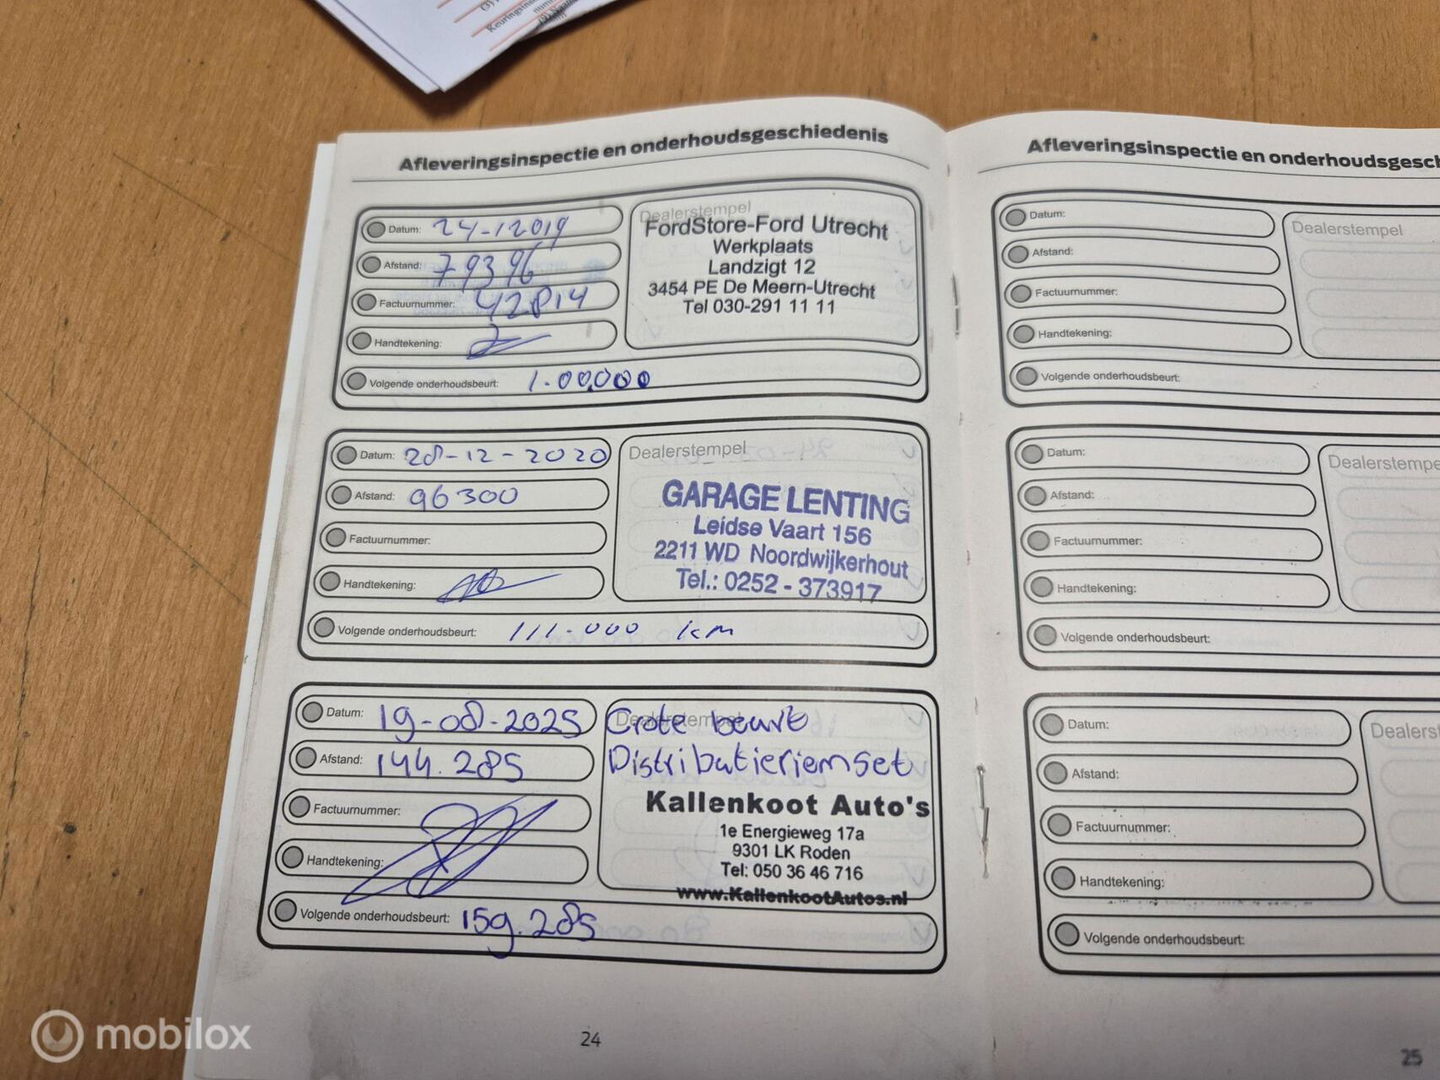 Afleveringsinspectie en onderhoudsgeschiedenis
Datum: 24-12019
Afstand: 79396
Factuurnummer: 42814
Handtekening:
Volgende onderhoudsbeurt: 1.00,000
Dealerstempel
FordStore-Ford Utrecht
Werkplaats
Landzigt 12
3454 PE De Meern-Utrecht
Tel 030-291 11 11
Datum: 28-12-2020
Afstand: 96300
Factuurnummer:
Handtekening:
Volgende onderhoudsbeurt: 111.000 km
Dealerstempel
GARAGE LENTING
Leidse Vaart 156
2211 WD Noordwijkerhout
Tel.: 0252 - 373917
Datum: 19-08-2025
Afstand: 144.285
Factuurnummer:
Handtekening:
Volgende onderhoudsbeurt: 159.285
Dealerstempel
Grote beurt
Distributieriemset
Kallenkoot Auto's
1e Energieweg 17a
9301 LK Roden
Tel: 050 36 46 716
www.KallenkootAutos.nl
24
Afleveringsinspectie en onderhoudsgesch
Datum:
Afstand:
Factuurnummer:
Handtekening:
Volgende onderhoudsbeurt:
Dealerstempel
Datum:
Afstand:
Factuurnummer:
Handtekening:
Volgende onderhoudsbeurt:
Dealerstempe
Datum:
Afstand:
Factuurnummer:
Handtekening:
Volgende onderhoudsbeurt:
Dealerst
25
mobilox